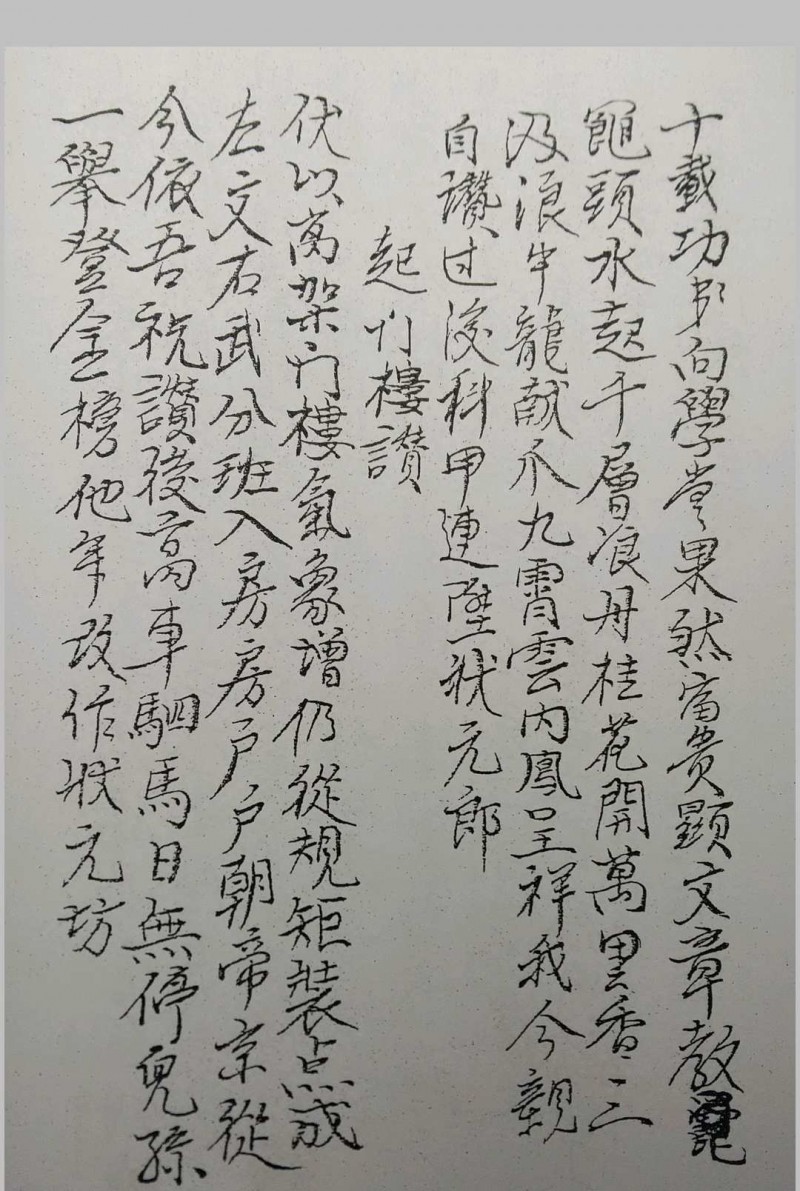 十載功夫向學堂果然富貴顯文章教
頭水起千層浪丹桂花開萬里香三
汲浪中龍献爪九霄雲内鳳呈祥我今親
自讚过後科甲連陞状元郎
起门樓讃
伏以萬架门樓氣象增仍從規矩裝点成
左文右武分班入房房戶戶朝帝京從
今依吾祝讃後高車駟馬日無停兒孫
一舉登金榜他年改作状元坊